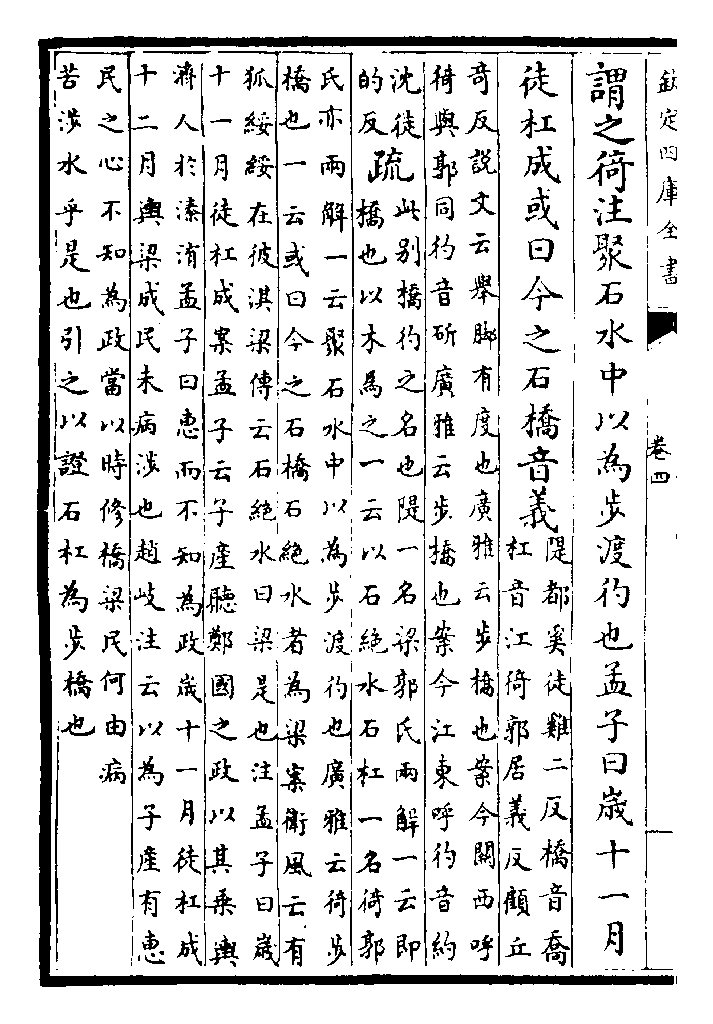 欽定四庫全書
卷四
謂之徛注聚石水中以為步渡彴也孟子曰歲十一月
徒杠成或曰今之石橋音義
隄都奚徒雞二反橋音喬
杠音江徛郭居義反顧丘
奇反說文云舉脚有度也廣雅云步橋也案今關西呼
徛與郭同彴音斫廣雅云步橋也案今江東呼彴音約
沈徒
的反
疏
此别橋彴之名也隄一名梁郭氏兩解一云即
橋也以木為之一云以石絶水石杠一名徛郭
氏亦兩解一云聚石水中以為步渡彴也廣雅云徛步
橋也一云或曰今之石橋石絶水者為梁案衛風云有
狐綏綏在彼淇梁傳云石絶水曰梁是也注孟子曰歲
十一月徒杠成案孟子云子產聽鄭國之政以其乘輿
濟人於溱洧孟子曰惠而不知為政歲十一月徒杠成
十二月輿梁成民未病涉也趙岐注云以為子產有惠
民之心不知為政當以時修橋梁民何由病
苦涉水乎是也引之以證石杠為步橋也